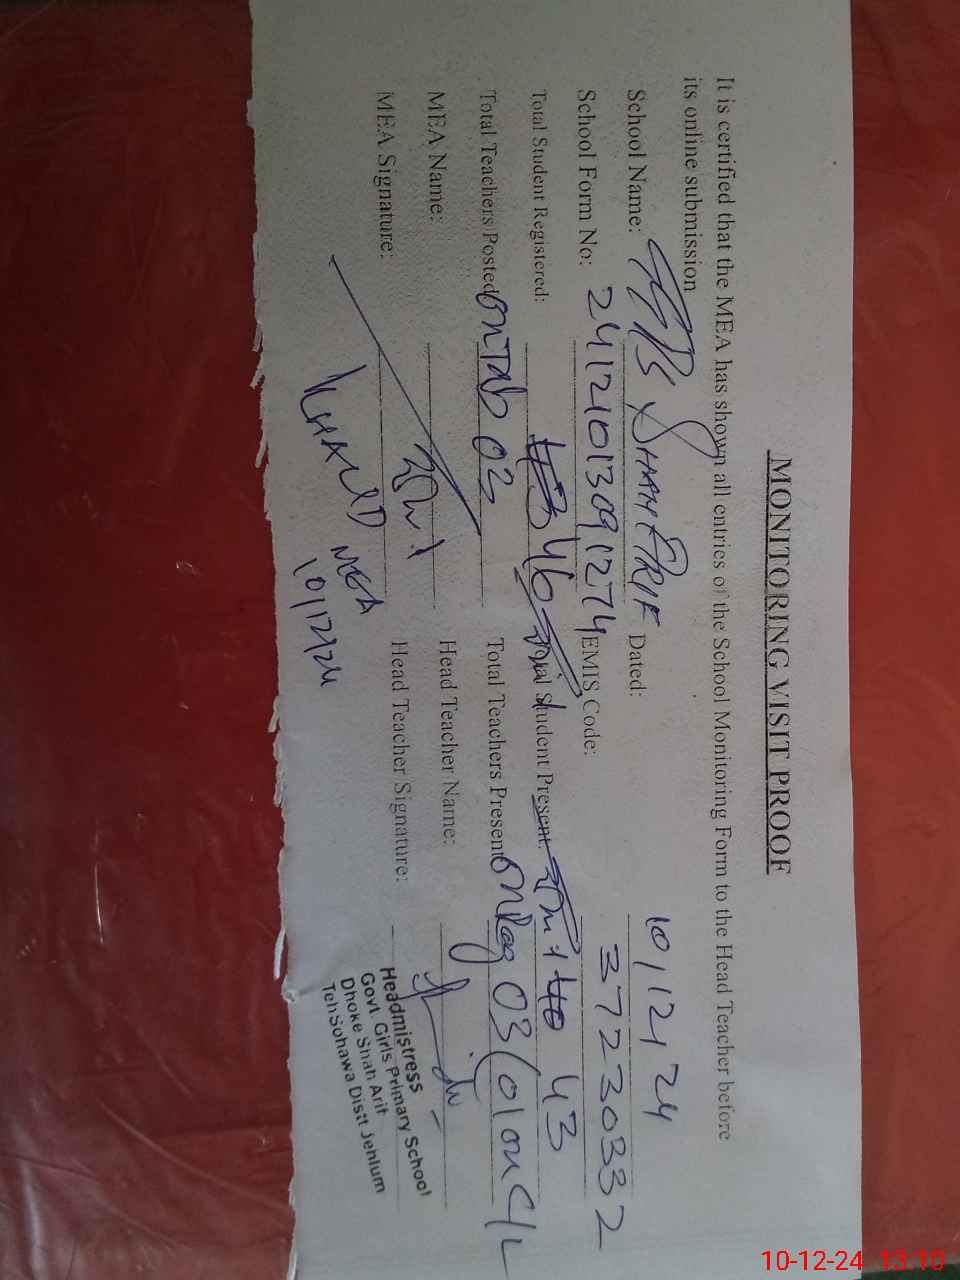 MONITORING VISIT PROOF
It is certified that the MEA has shown all entries of the School Monitoring Form to the Head Teacher before
its online submission
School Name: GGPS SHAH ARIF Dated: 10/12/24
School Form No: 241210130991274 EMIS Code: 37230332
Total Student Registered: 46 Total Student Present: 43
Total Teachers Posted: on Tab 02 Total Teachers Present: 03 (01 on C/L
MEA Name: Head Teacher Name:
MEA Signature: Head Teacher Signature:
KHALID MEA
10/12/24
Headmistress
Govt. Girls Primary School
Dhoke Shah Arif
Teh Sohawa Distt Jehlum
10-12-24 13:10